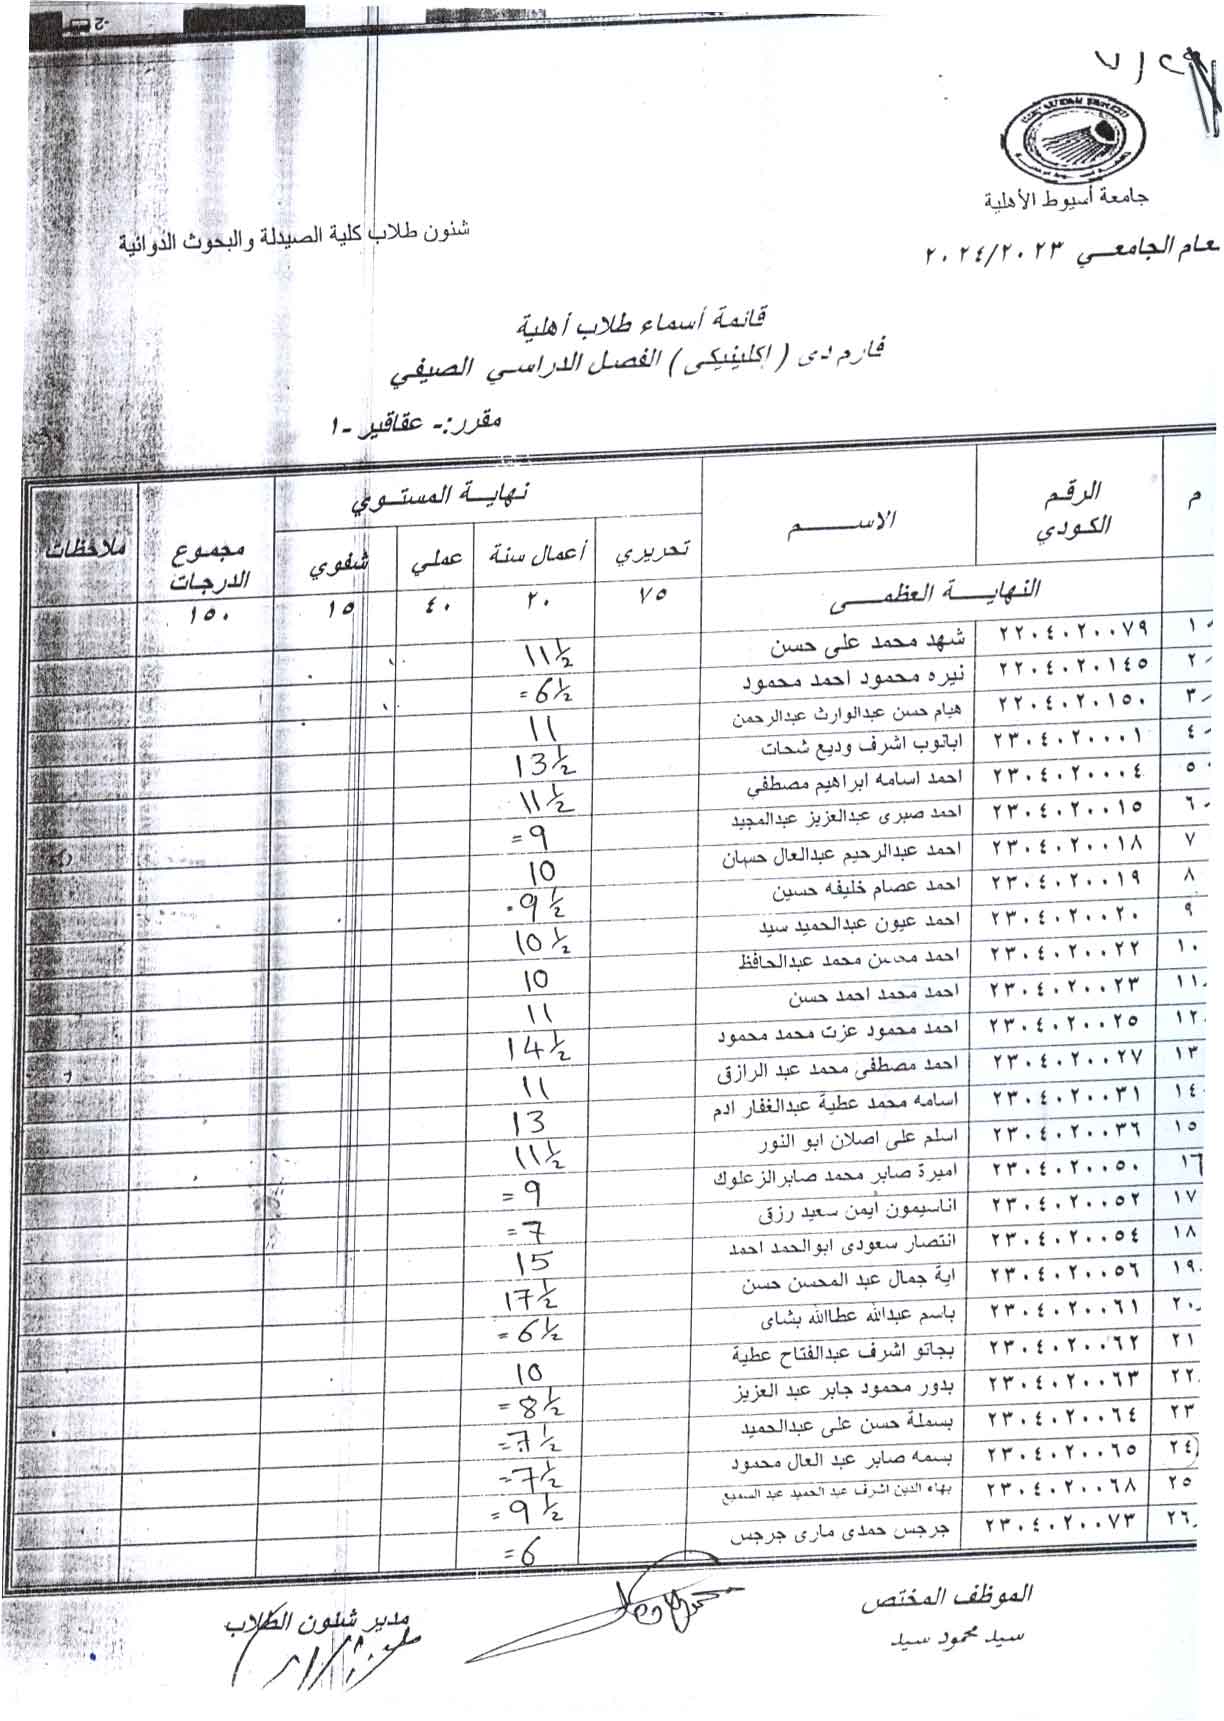 جامعة أسيوط الأهلية
شئون طلاب كلية الصيدلة والبحوث الدوائية
لعام الجامعي ٢٠٢٤/٢٠٢٣
قائمة أسماء طلاب أهلية
فارم دى (إكلينيكى) الفصل الدراسي الصيفي
مقرر:- عقاقير -١
م الرقم الكودي الاســـم نهايـة المستـوي مجموع الدرجات ملاحظات
تحريري أعمال سنة عملي شفوي
النهايــة العظمــى ٧٥ ٢٠ ٤٠ ١٥ ١٥٠
١ ٢٢٠٤٠٢٠٠٧٩ شهد محمد على حسن 11½
٢ ٢٢٠٤٠٢٠١٤٥ نيره محمود احمد محمود 6½ =
٣ ٢٢٠٤٠٢٠١٥٠ هيام حسن عبدالوارث عبدالرحمن 11
٤ ٢٣٠٤٠٢٠٠٠١ ابانوب اشرف وديع شحات 13½
٥ ٢٣٠٤٠٢٠٠٠٤ احمد اسامه ابراهيم مصطفي 11½
٦ ٢٣٠٤٠٢٠٠١٥ احمد صبرى عبدالعزيز عبدالمجيد 9 =
٧ ٢٣٠٤٠٢٠٠١٨ احمد عبدالرحيم عبدالعال حسان 10
٨ ٢٣٠٤٠٢٠٠١٩ احمد عصام خليفه حسين 9½
٩ ٢٣٠٤٠٢٠٠٢٠ احمد عيون عبدالحميد سيد 10½
١٠ ٢٣٠٤٠٢٠٠٢٢ احمد محسن محمد عبدالحافظ 10
١١ ٢٣٠٤٠٢٠٠٢٣ احمد محمد احمد حسن 11
١٢ ٢٣٠٤٠٢٠٠٢٥ احمد محمود عزت محمد محمود 14½
١٣ ٢٣٠٤٠٢٠٠٢٧ احمد مصطفى محمد عبد الرازق 11
١٤ ٢٣٠٤٠٢٠٠٣١ اسامه محمد عطية عبدالغفار ادم 13
١٥ ٢٣٠٤٠٢٠٠٣٦ اسلم على اصلان ابو النور 11½
١٦ ٢٣٠٤٠٢٠٠٥٠ اميرة صابر محمد صابرالزعلوك 9 =
١٧ ٢٣٠٤٠٢٠٠٥٢ اناسيمون أيمن سعيد رزق 7 =
١٨ ٢٣٠٤٠٢٠٠٥٤ انتصار سعودى ابوالحمد احمد 15
١٩ ٢٣٠٤٠٢٠٠٥٦ اية جمال عبد المحسن حسن 17½
٢٠ ٢٣٠٤٠٢٠٠٦١ باسم عبدالله عطاالله بشاى 6½ =
٢١ ٢٣٠٤٠٢٠٠٦٢ بجاتو اشرف عبدالفتاح عطية 10
٢٢ ٢٣٠٤٠٢٠٠٦٣ بدور محمود جابر عبد العزيز 8½ =
٢٣ ٢٣٠٤٠٢٠٠٦٤ بسملة حسن على عبدالحميد 7½ =
٢٤ ٢٣٠٤٠٢٠٠٦٥ بسمه صابر عبد العال محمود 7½ =
٢٥ ٢٣٠٤٠٢٠٠٦٨ بهاء الدين اشرف عبد الحميد عبد السميع 9½ =
٢٦ ٢٣٠٤٠٢٠٠٧٣ جرجس حمدى مارى جرجس 6 =
الموظف المختص مدير شئون الطلاب
سيد محمود سيد